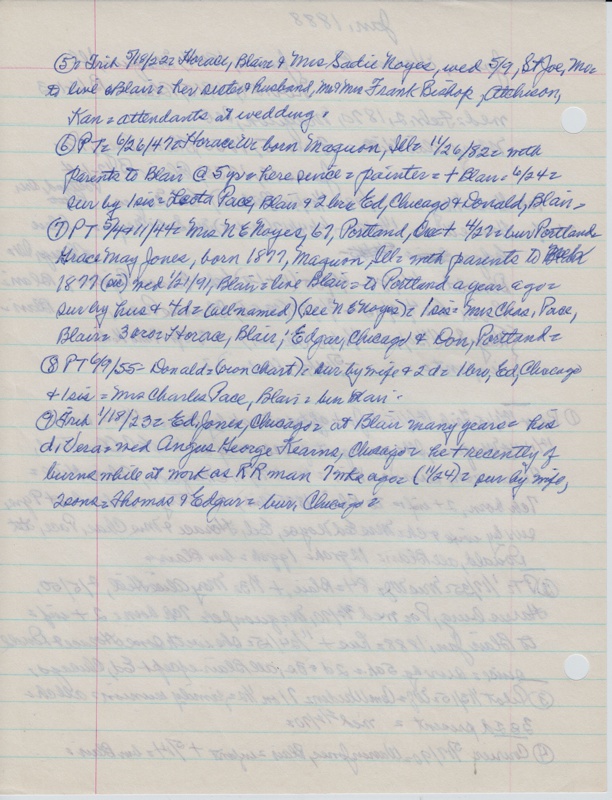 ⑤ Trib 5/10/22= Horace, Blair & Mrs Sadie Noyes, wed 5/9, St Joe, Mo=
to live Blair= her sister & husband, Mr & Mrs Frank Bishop, Atchison,
Kan= attendants at wedding.
⑥ PT= 6/26/47= Horace W= born Maquon, Ill= 11/26/82= with
parents to Blair @ 5 yrs= here since= painter= + Blair= 6/24=
sur by 1 sis= Leota Pace, Blair & 2 bro= Ed, Chicago & Donald, Blair=
⑦ PT 5/4+11/44= Mrs N E Noyes, 67, Portland, Ore + 4/27= bur Portland=
Grace May Jones, born 1877, Maquon, Ill= with parents to
1877 (sic) wed 1/21/91, Blair= live Blair= to Portland a year ago=
sur by hus & 4 d= (all named) (see N E Noyes)= 1 sis= Mrs Chas, Pace,
Blair= 3 bro= Horace, Blair, Edgar, Chicago & Don, Portland=
⑧ PT 6/9/55= Donald= (on chart)= sur by wife & 2 d= 1 bro, Ed, Chicago
& 1 sis= Mrs Charles Pace, Blair= bur Blair=
⑨ Trib 1/18/23= Ed Jones, Chicago= at Blair many years= his
d, Vera= wed Angus George Kearns, Chicago= he + recently of
burns while at work as RR man 7 wks ago= (11/24)= sur by wife,
2 sons= Thomas & Edgar= bur, Chicago=